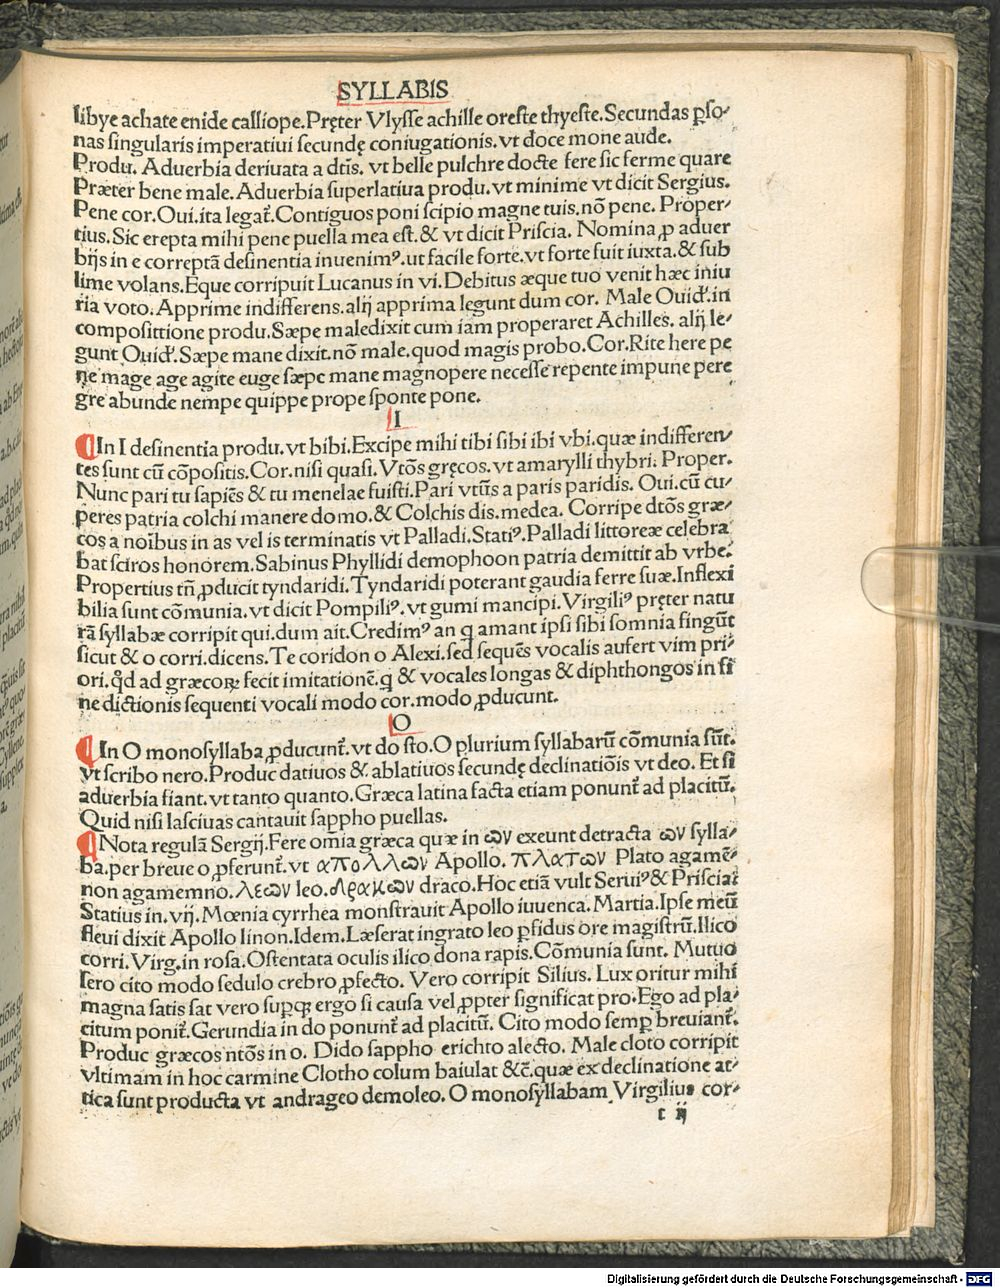 SYLLABIS
libye achate enide calliope.Pręter Vlysse achille oreste thyeste.Secundas ꝑso-
nas singularis imperatiui secundę coniugationis.vt doce mone aude.
Produ. Aduerbia deriuata a dtis. vt belle pulchre docte fere sic ferme quare
Præter bene male.Aduerbia superlatiua produ.vt minime vt dicit Sergius.
Pene cor.Oui.ita legat̄.Contiguos poni scipio magne tuis.nō pene. Proper-
tius.Sic erepta mihi pene puella mea est.& vt dicit Priscia. Nomina ꝓ aduer
bijs in e correptā desinentia inuenimꝰ.ut facile forte.vt forte fuit iuxta.& sub
lime volans.Eque corripuit Lucanus in vi.Debitus æque tuo venit hæc iniu
ria voto.Apprime indifferens.alij apprima legunt dum cor. Male Ouid.in
composittione produ.Sæpe maledixit cum iam properaret Achilles. alij le-
gunt Ouid.Sæpe mane dixit.nō male.quod magis probo.Cor.Rite here pe
ne mage age agite euge sæpe mane magnopere necesse repente impune pere
gre abunde nempe quippe prope sponte pone.
I
In I desinentia produ.vt bibi.Excipe mihi tibi sibi ibi vbi.quæ indifferen-
tes sunt cū cōpositis.Cor.nisi quasi.Vtōs gręcos.vt amarylli thybri. Proper.
Nunc pari tu sapiēs & tu menelae fuisti.Pari vtūs a paris paridis. Oui.cū cu-
peres patria colchi manere domo.& Colchis dis.medea. Corripe dtōs græ-
cos a noībus in as vel is terminatis vt Palladi.Statiꝰ.Palladi littoreæ celebra
bat sciros honorem.Sabinus Phyllidi demophoon patria demittit ab vrbe.
Propertius tn̄ ꝓducit tyndaridi.Tyndaridi poterant gaudia ferre suæ.Inflexi
bilia sunt cōmunia.vt dicit Pompiliꝰ.vt gumi mancipi.Virgiliꝰ pręter natu
rā syllabæ corripit qui.dum ait.Credimꝰ an q amant ipsi sibi somnia fingūt
sicut & o corri.dicens.Te coridon o Alexi.sed sequēs vocalis aufert vim pri-
ori.qd ad græcoꝝ fecit imitationē.q & vocales longas & diphthongos in fi
ne dictionis sequenti vocali modo cor.modo ꝓducunt.
O
In O monosyllaba ꝓducunt̄.vt do sto.O plurium syllabarū cōmunia sūt.
vt scribo nero.Produc datiuos & ablatiuos secundę declinatiōis vt deo. Et si
aduerbia fiant.vt tanto quanto.Græca latina facta etiam ponunt̄ ad placitū.
Quid nisi lasciuas cantauit sappho puellas.
Nota regulā Sergij.Fere omīa græca quæ in ων exeunt detracta ων sylla-
ba.per breue o ꝓferunt̄. vt απολλων Apollo. πλατων Plato agamē-
non agamemno.λεων leo.δρακων draco.Hoc etiā vult Seruiꝰ& Priscia:
Statius in.vij.Mœnia cyrrhea monstrauit Apollo iuuenca. Martia.Ipse meū
fleui dixit Apollo linon.Idem.Læserat ingrato leo ꝑfidus ore magistrū.Ilico
corri.Virg.in rosa.Ostentata oculis ilico dona rapis.Cōmunia sunt. Mutuo
sero cito modo sedulo crebro ꝓfecto. Vero corripit Silius. Lux oritur mihi
magna satis sat vero supqꝫ ergo si causa vel ꝓpter significat pro.Ego ad pla-
citum ponit̄.Gerundia in do ponunt̄ ad placitū. Cito modo semꝑ breuiant̄.
Produc græcos ntōs in o. Dido sappho erichto alecto. Male cloto corripit
vltimam in hoc carmine Clotho colum baiulat &c̄.quæ ex declinatione at-
tica sunt producta vt andrageo demoleo. O monosyllabam Virgilius cor-
c ij
Digitalisierung gefördert durch die Deutsche Forschungsgemeinschaft - DFG